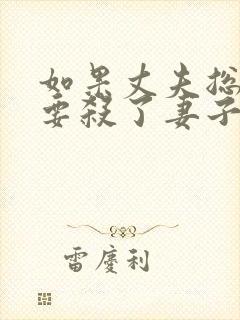 如果丈夫
要殺了妻子
雷慶利